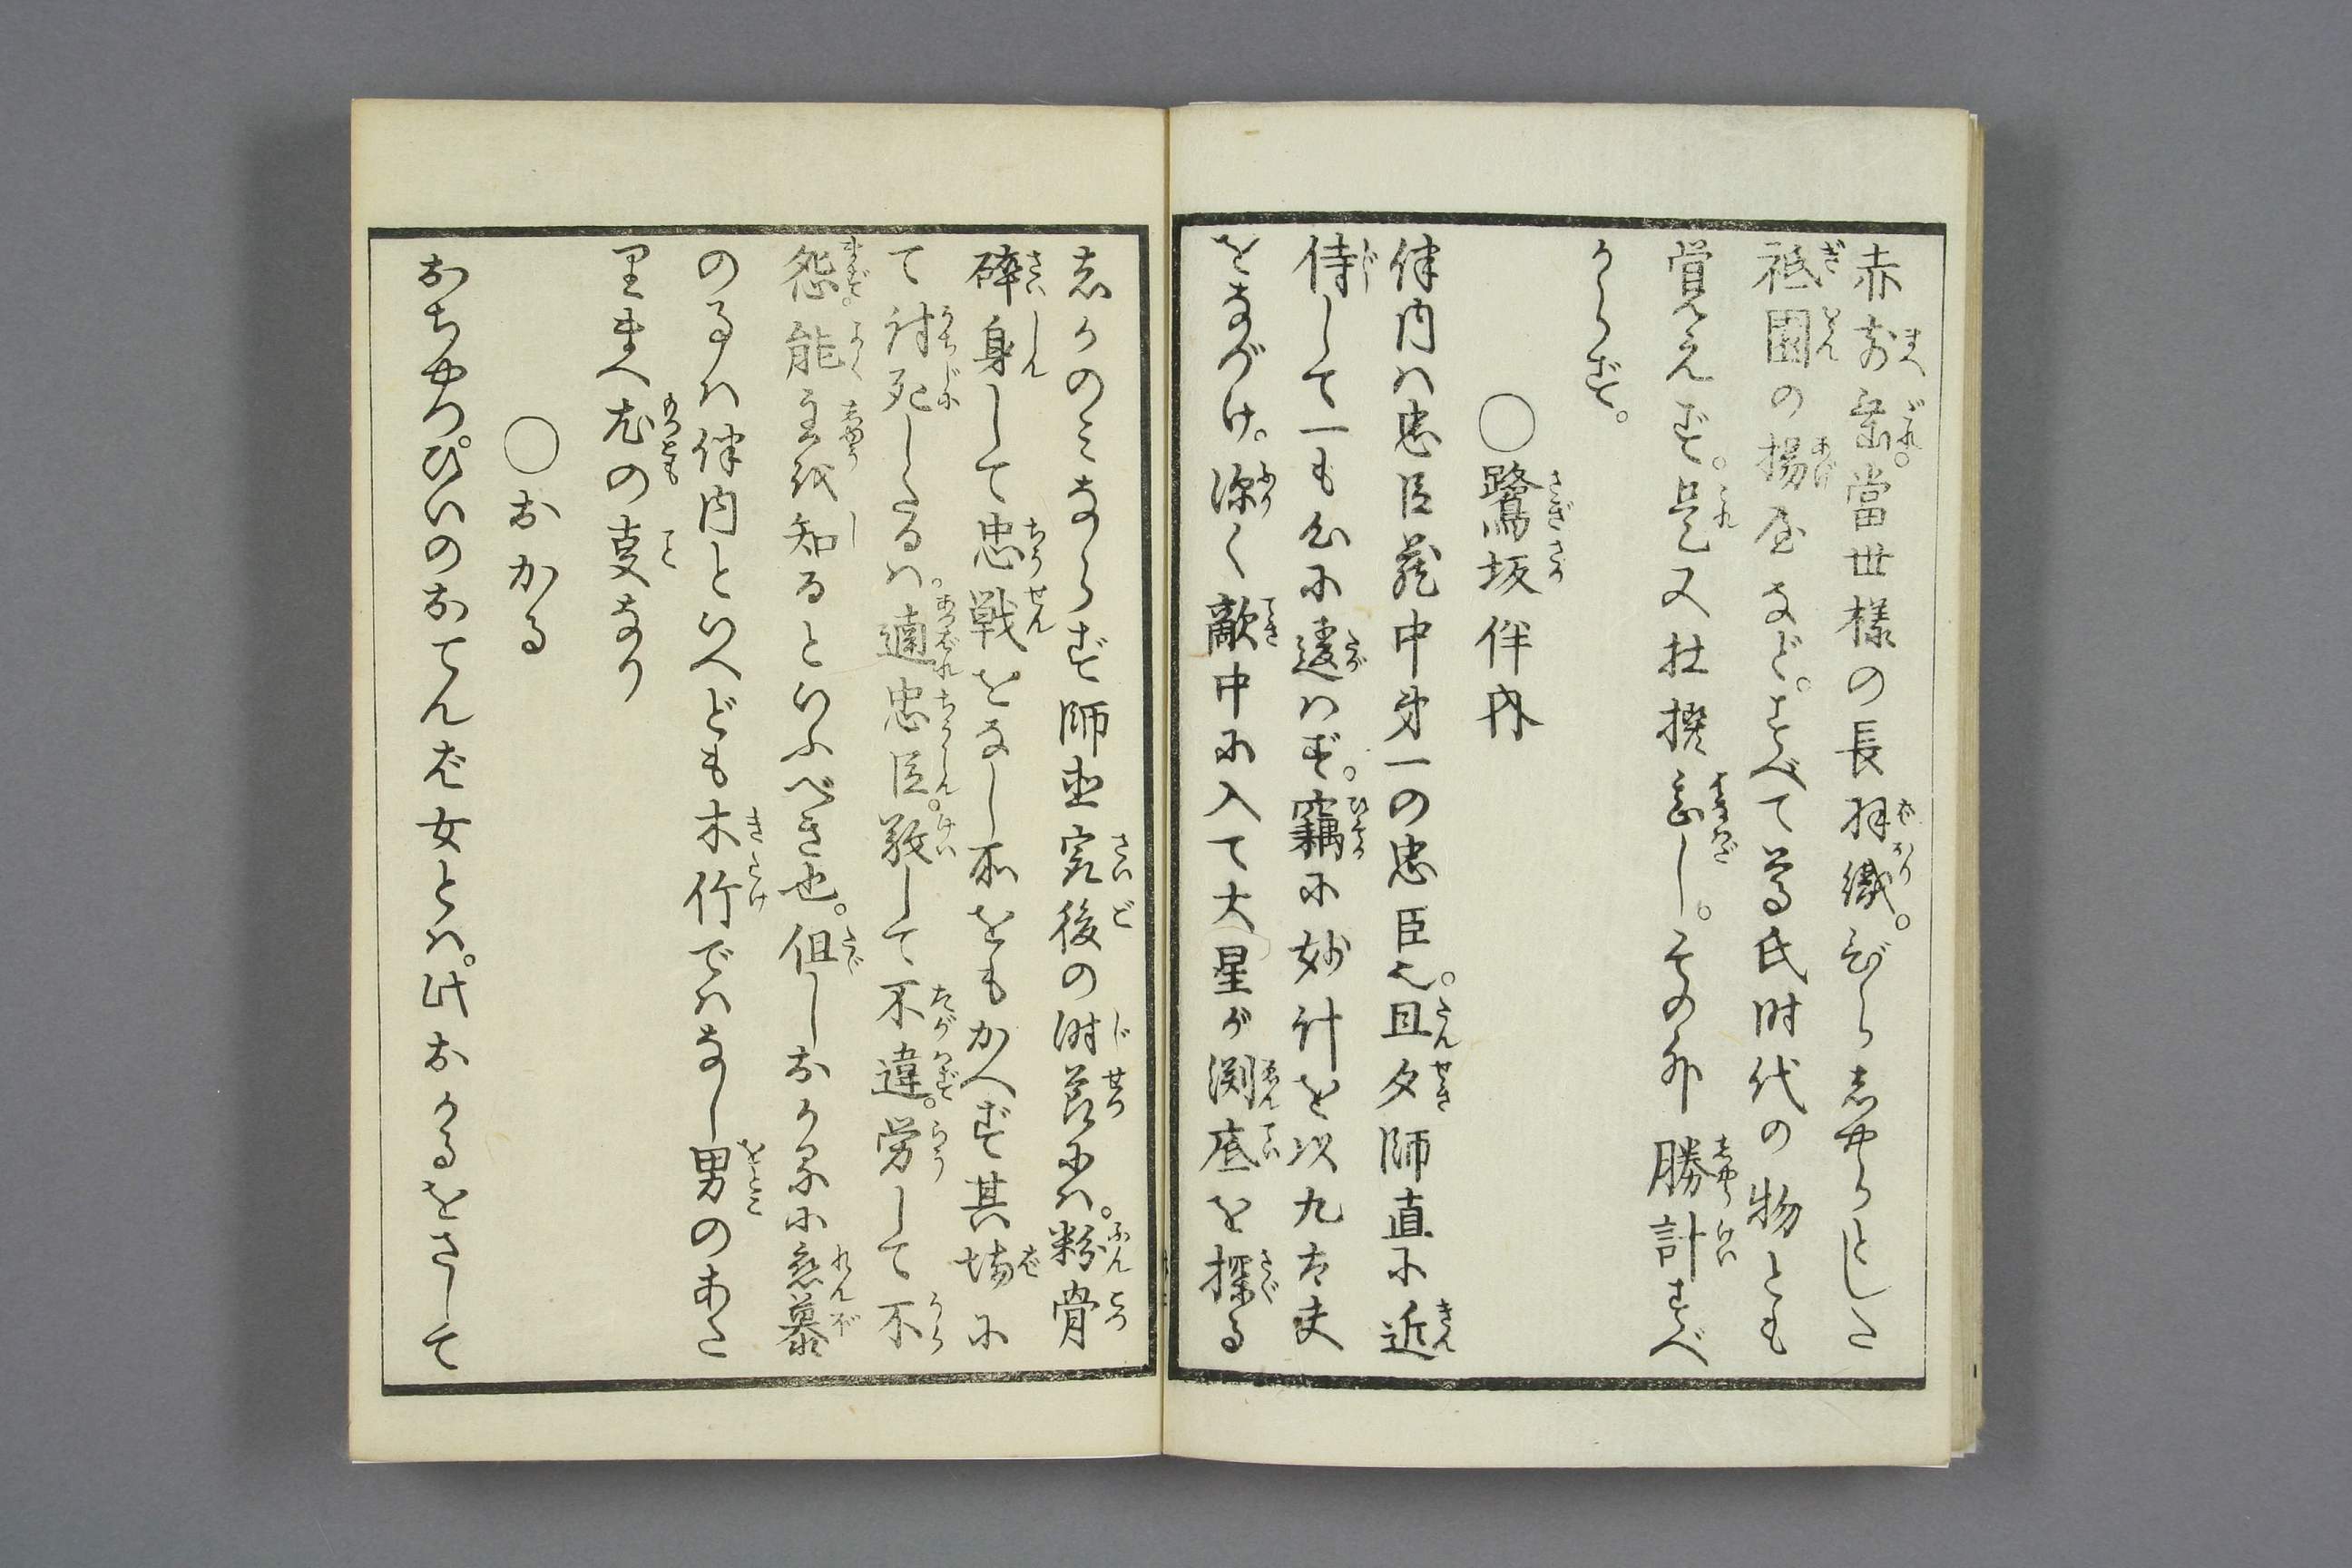 赤前垂。當世様の長羽織。びらしやらとした
祇園の揚屋など。すべて尊氏時代の物とも
覚えず。是又杜撰甚し。その外勝計すべ
からず。
○鷺坂伴内
伴内ハ忠臣蔵中第一の忠臣也。旦夕師直に近
侍して一も心に違ハず。竊に妙計を以九太夫
をなづけ。深く敵中に入て大星が渕底を探る
しかのミならず師直最後の時節にハ。粉骨
砕身して忠戦をなし命をもかへず其場に
て討死したるハ。適忠臣。敬して不違。労して不
怨。能主を知るといふべき也。但しおかるに恋慕
のるハ伴内といへども木竹でハなし男のあた
りまへ尤の事なり
○おかる
おちやつぴいのおてんば女とハ。此おかるをさして